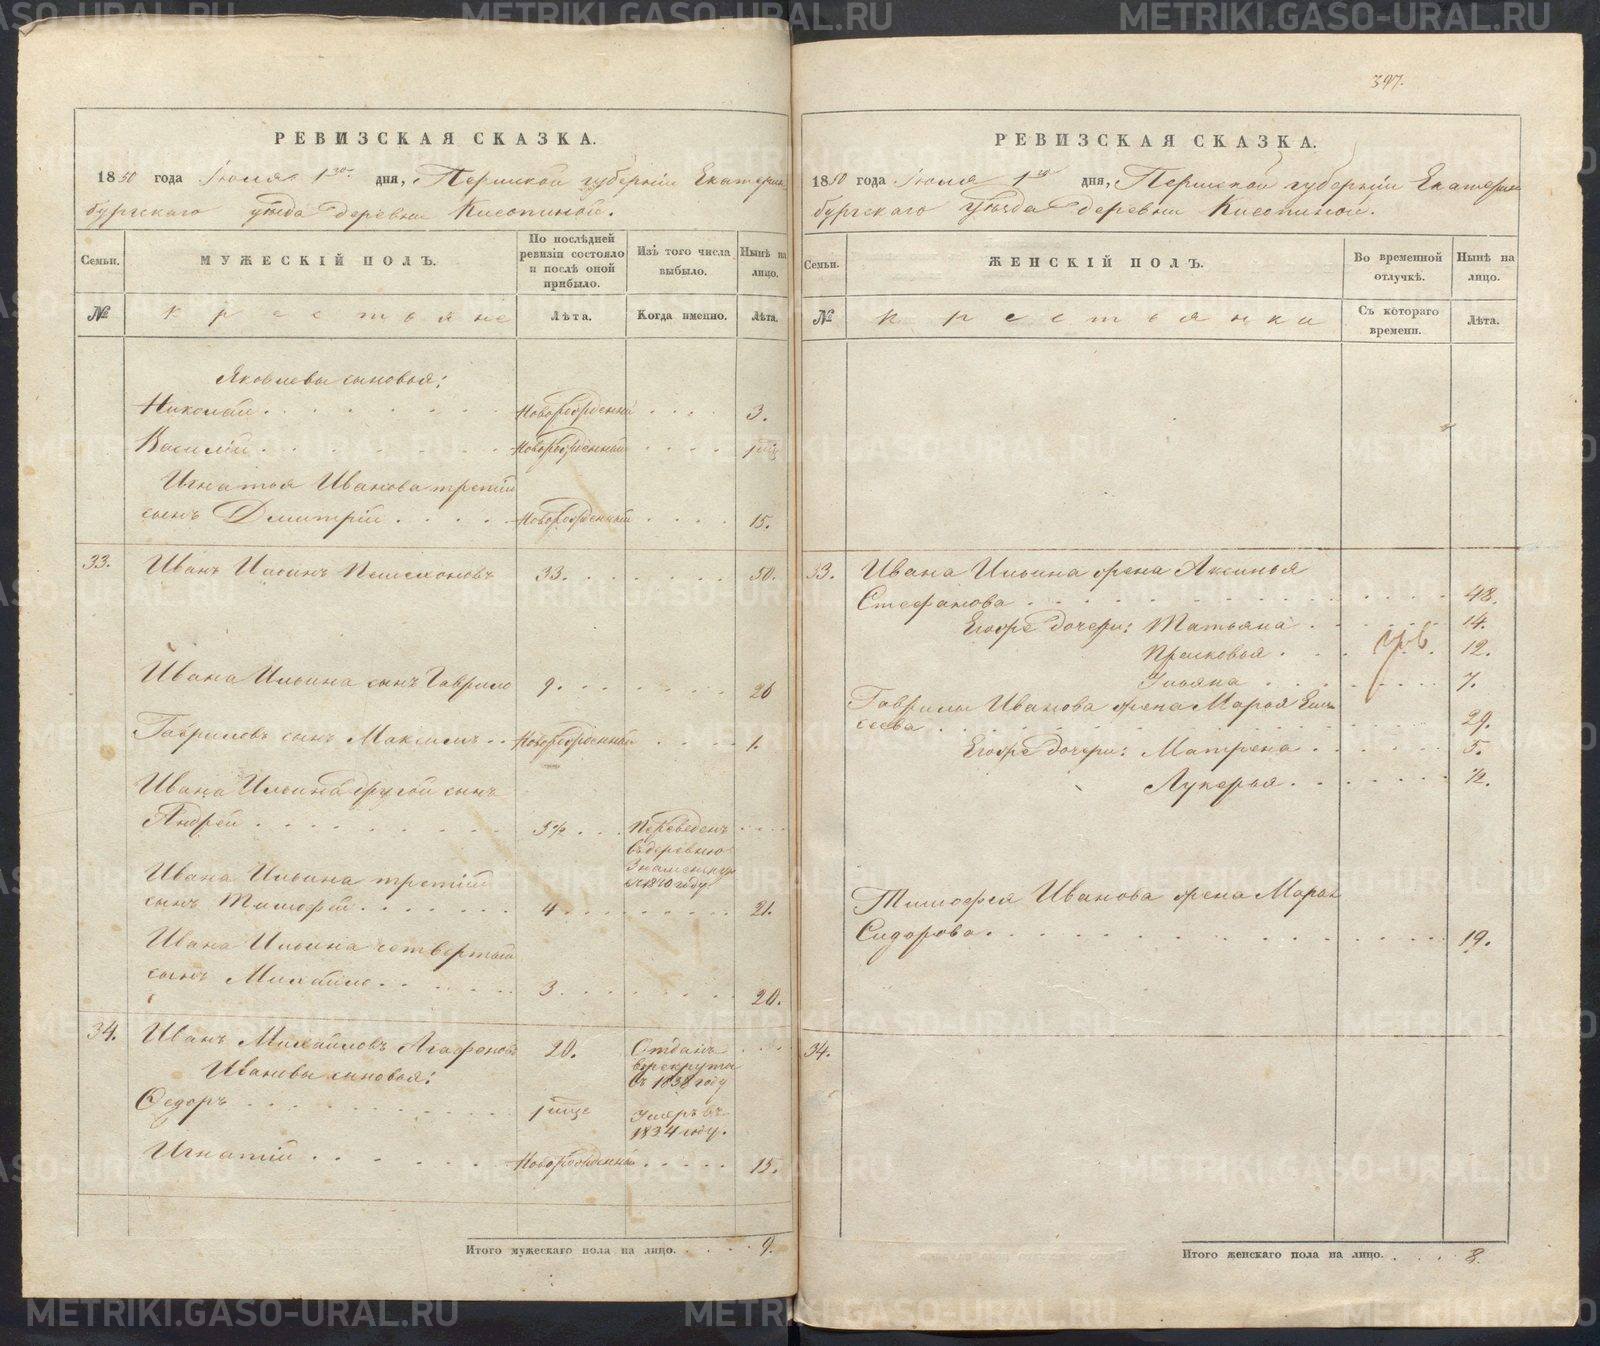 РЕВИЗСКАЯ СКАЗКА.
1850 года Іюля 1го дня, Пермской губерніи Екатерин-
бургскаго уѣзда деревни
Семьи.
МУЖЕСКІЙ ПОЛЪ.
По послѣдней
ревизіи состояло
и послѣ оной
прибыло.
Изъ того числа
выбыло.
Нынѣ на
лицо.
№
крестьяне
Лѣта.
Когда именно.
Лѣта.
Яковлевы сыновья:
Николай новорожденный 3.
Василій новорожденный
Игнатья Иванова третій
сынъ Дмитрій новорожденный 15.
33. Иванъ Ильинъ 33. 50.
Ивана Ильина сынъ Гаврило 9. 26
Гавриловъ сынъ Максимъ новорожденный 1.
Ивана Ильина другой сынъ
Андрей 5½ Переведенъ
въ деревню
въ 1840 году
Ивана Ильина третій
сынъ Тимофей 4 21.
Ивана Ильина четвертый
сынъ Михайло 3 20.
34. Иванъ Михайловъ Агафоновъ 20. Отданъ
в рекруты
въ 1838 году
Ивановы сыновья:
Федоръ умеръ въ
1834 году.
Игнатій новорожденный 15.
Итого мужескаго пола на лицо. 9.
397.
РЕВИЗСКАЯ СКАЗКА.
1850 года Іюля 1го дня, Пермской губерніи Екатерин-
бургскаго уѣзда деревни
Семьи.
ЖЕНСКІЙ ПОЛЪ.
Во временной
отлучкѣ.
Нынѣ на
лицо.
№
крестьянки
Съ котораго
времени.
Лѣта.
33. Ивана Ильина жена Аксинья
Стефанова 48.
Егожъ дочери: Татьяна 14.
Прасковья 12.
Ульяна 7.
Гаврилы Иванова жена Марья Ели-
сеева 29.
Егожъ дочери: Матрена 5.
Лукерья ½.
Тимофея Иванова жена Марья
Сидорова 19.
34.
Итого женскаго пола на лицо. 8.
METRIKI.GASO-URAL.RU